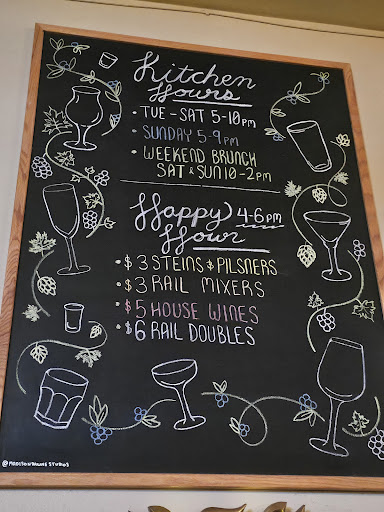 Kitchen
Hours
• TUE - SAT 5-10pm
• SUNDAY 5-9pm
• WEEKEND BRUNCH
SAT & SUN 10-2pm
Happy 4-6pm
Hour
• $3 STEINS & PILSNERS
• $3 RAIL MIXERS
• $5 HOUSE WINES
• $6 RAIL DOUBLES